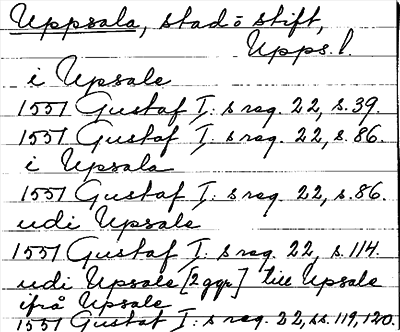 Uppsala, stad o stift,
Upps. l.
i Upsale
1551 Gustaf I: s reg. 22, s. 39.
1551 Gustaf I: s reg. 22, s. 86.
i Upsala
1551 Gustaf I: s reg. 22, s. 86.
udi Upsale
1551 Gustaf I: s reg. 22, s. 114.
udi Upsale [2 ggr] till Upsale
ifrå Upsale
1551 Gustaf I: s reg. 22, ss. 119, 120.